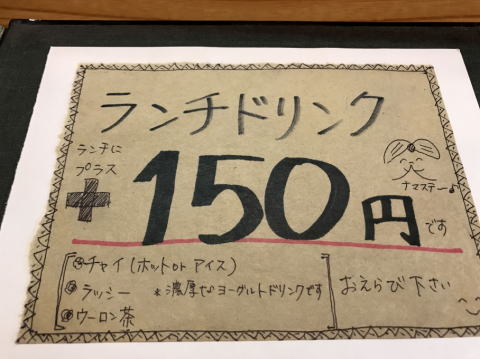 ランチドリンク
ランチに
プラス
+150円です
ナマステー♪
チャイ(ホット or アイス)
ラッシー *濃厚なヨーグルトドリンクです
ウーロン茶
おえらび下さい